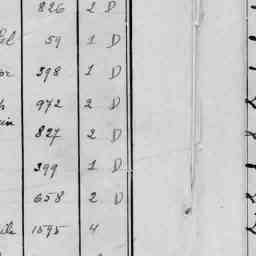 826 2 D
59 1 D
398 1 D
972 2 D
827 2 D
399 1 D
658 2 D
1595 4